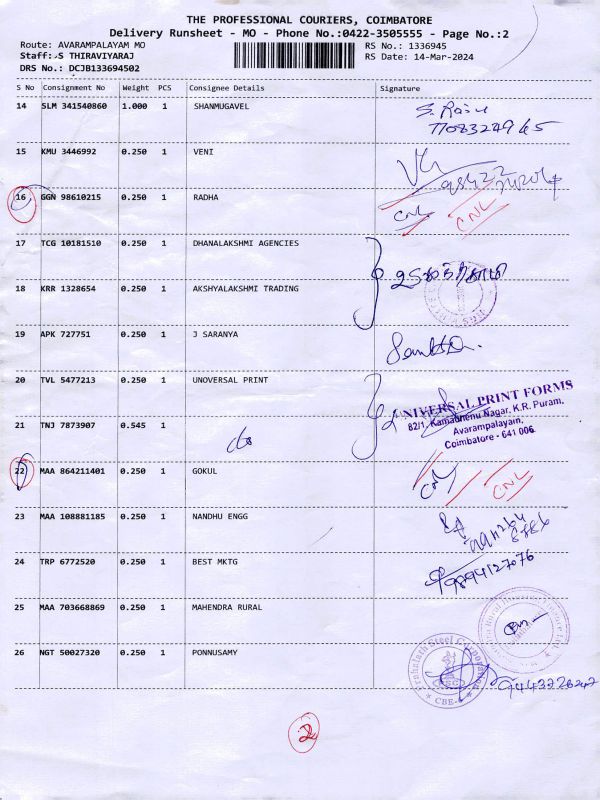 THE PROFESSIONAL COURIERS, COIMBATORE
Delivery Runsheet - MO - Phone No.:0422-3505555 - Page No.:2
Route: AVARAMPALAYAM MO
RS No.: 1336945
Staff: S THIRAVIYARAJ
RS Date: 14-Mar-2024
DRS No.: DCJB133694502
S No Consignment No Weight PCS Consignee Details Signature
14 SLM 341540860 1.000 1 SHANMUGAVEL
15 KMU 3446992 0.250 1 VENI
16 GGN 98610215 0.250 1 RADHA
CNL CNL
17 TCG 10181510 0.250 1 DHANALAKSHMI AGENCIES
18 KRR 1328654 0.250 1 AKSHYALAKSHMI TRADING
19 APK 727751 0.250 1 J SARANYA
20 TVL 5477213 0.250 1 UNOVERSAL PRINT
UNIVERSAL PRINT FORMS
82/1, Kamadhenu Nagar, K.R. Puram,
Avarampalayam,
Coimbatore - 641 006.
21 TNJ 7873907 0.545 1
do
22 MAA 864211401 0.250 1 GOKUL
CNL CNL
23 MAA 108881185 0.250 1 NANDHU ENGG
24 TRP 6772520 0.250 1 BEST MKTG
9894127076
25 MAA 703668869 0.250 1 MAHENDRA RURAL
26 NGT 50027320 0.250 1 PONNUSAMY
Prahalath Steel Corporation
CBE-6
2